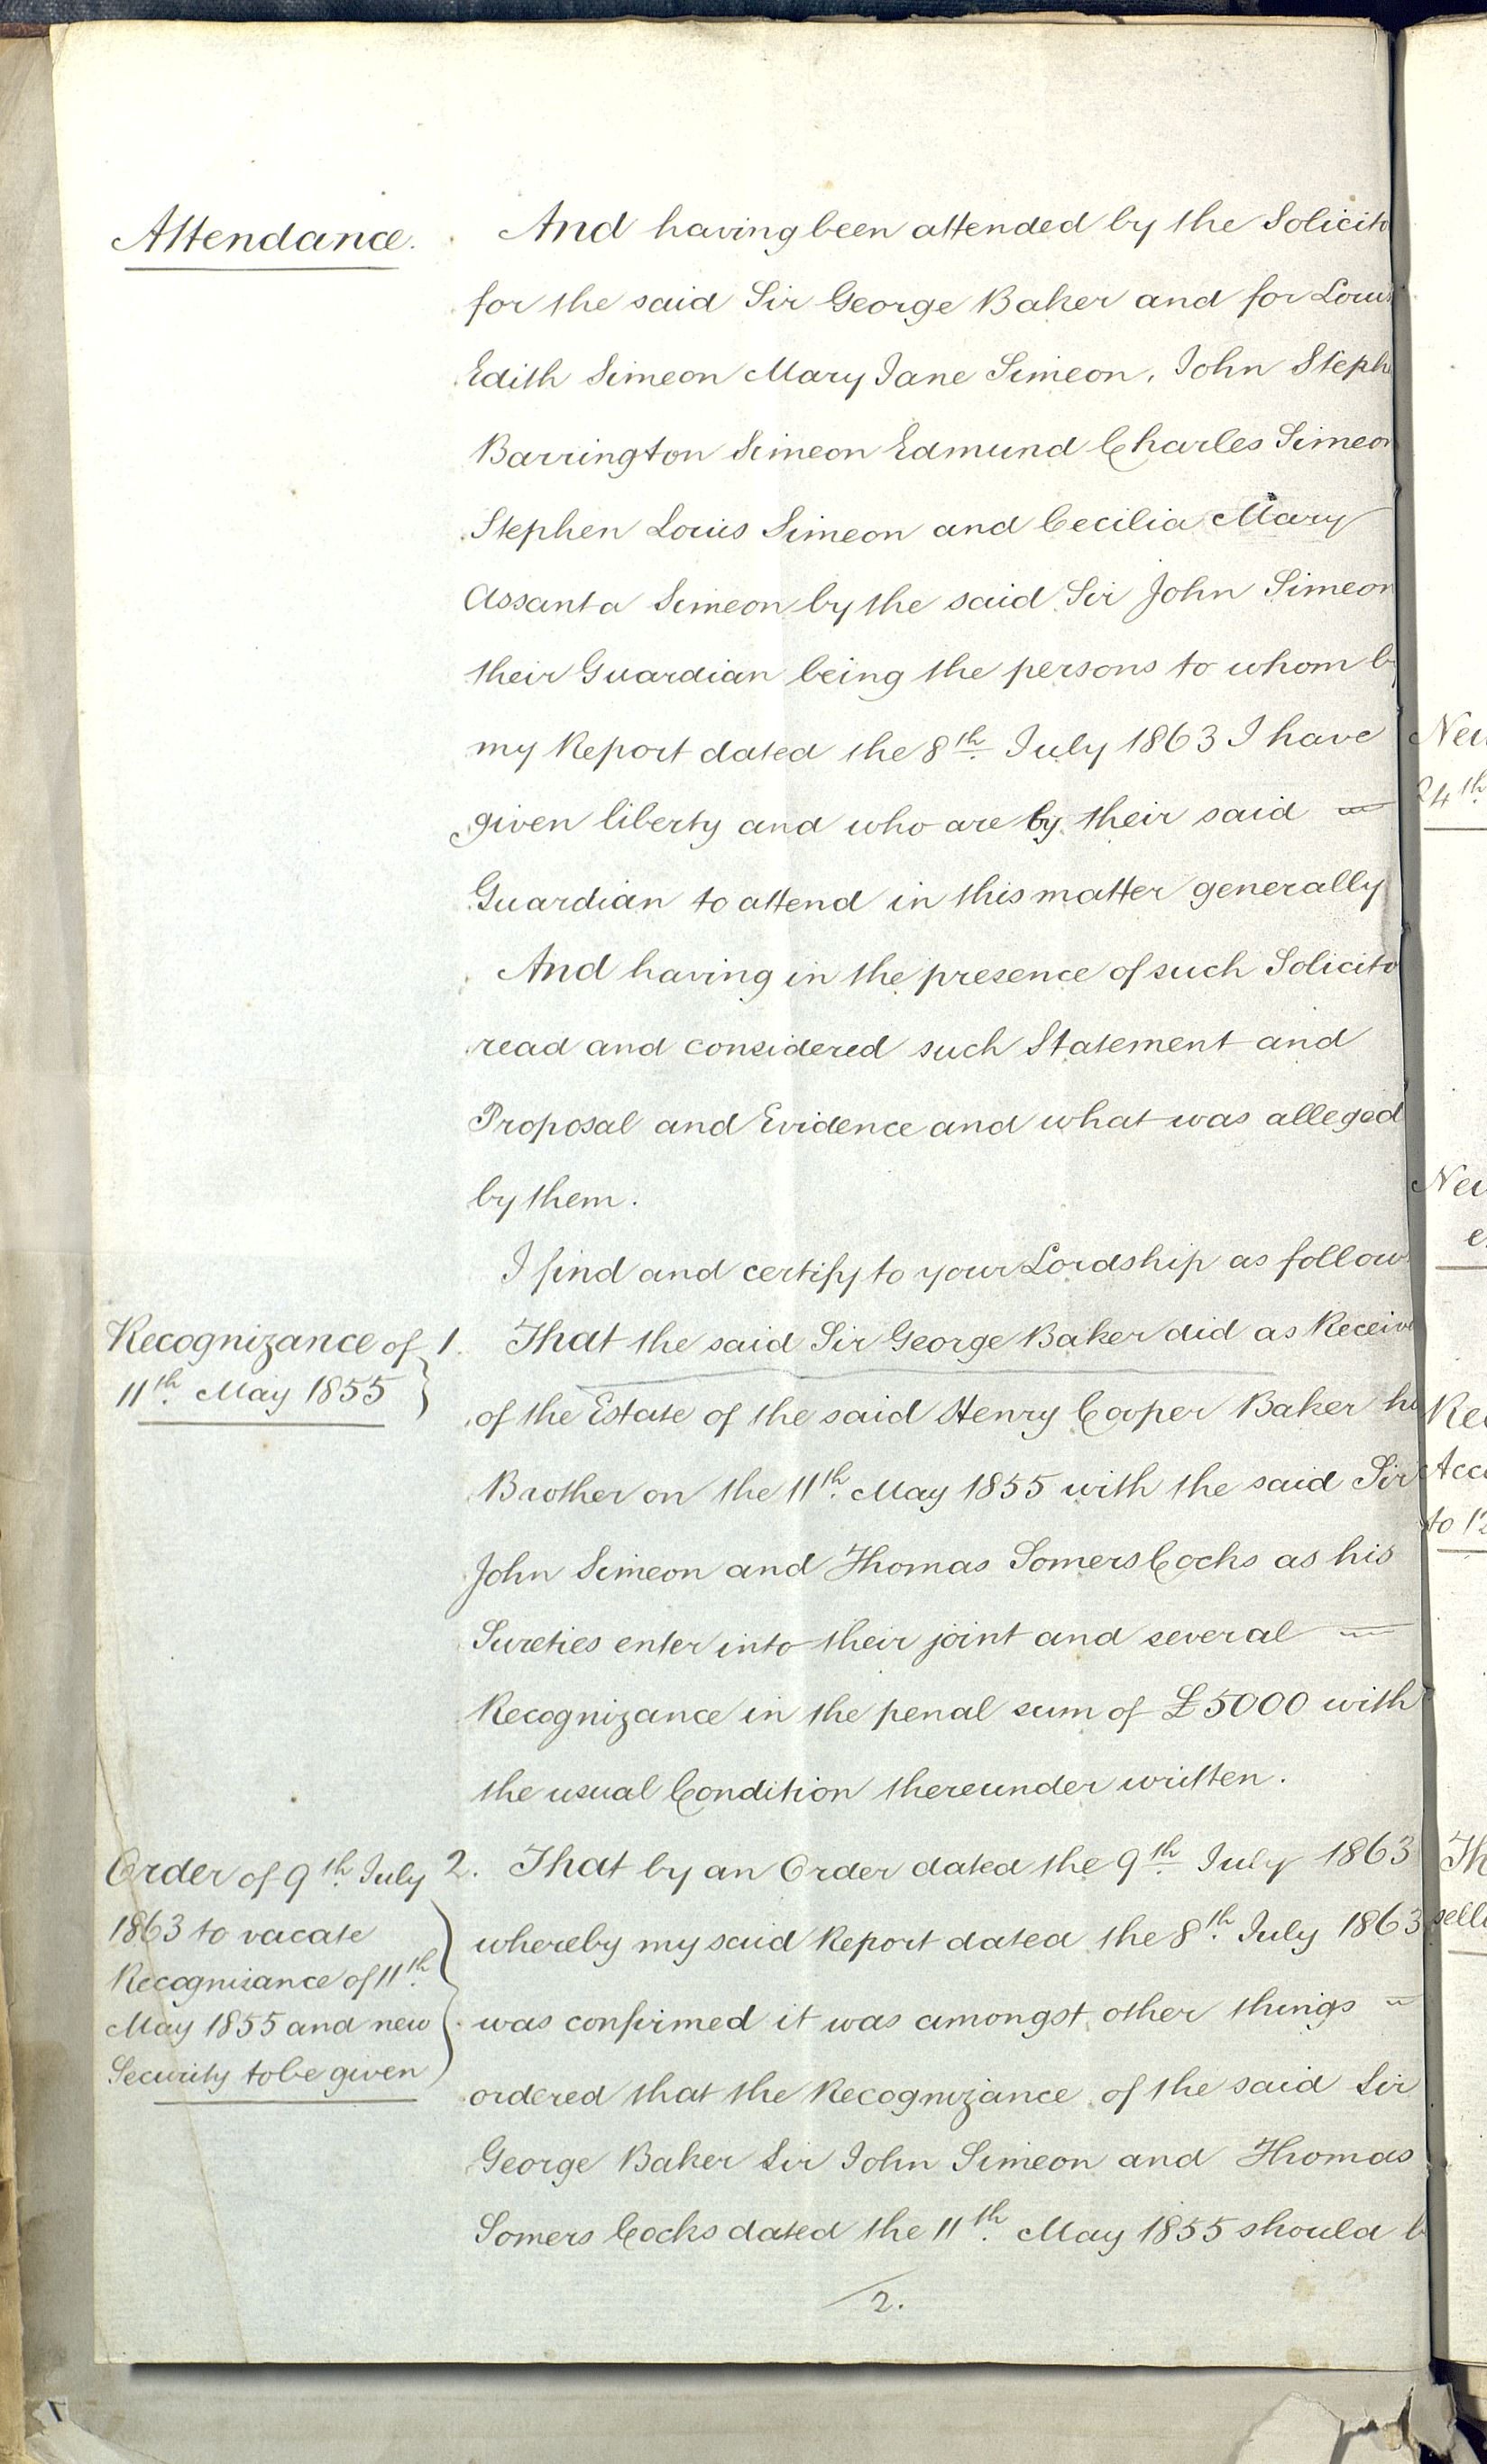 Attendance.
And having been attended by the Solicito
for the said Sir George Baker and for Louis
Edith Simeon Mary Jane Simeon, John Steph
Barrington Simeon Edmund Charles Simeon
Stephen Louis Simeon and Cecilia Mary
Assanta Simeon by the said Sir John Simeon
their Guardian being the persons to whom b
my Report dated the 8th July 1863 I have
given liberty and who are by their said
Guardian to attend in this matter generally
And having in the presence of such Solicito
read and considered such Statement and
Proposal and Evidence and what was alleged
by them.
I find and certify to your Lordship as follow
Recognizance of
11th May 1855
1. That the said Sir George Baker did as Receive
of the Estate of the said Henry Cooper Baker hi
Brother on the 11th May 1855 with the said Sir
John Simeon and Thomas Somers Cocks as his
Sureties enter into their joint and several
Recognizance in the penal sum of £5000 with
the usual Condition thereunder written.
Order of 9th July
1863 to vacate
Recognisance of 11th
May 1855 and new
Security to be given
2. That by an Order dated the 9th July 1863
whereby my said Report dated the 8th July 1863
was confirmed it was amongst other things
ordered that the Recognizance of the said Sir
George Baker Sir John Simeon and Thomas
Somers Cocks dated the 11th May 1855 should b
2.
Ne
24th
Ne
e
Re
Acc
to 12
Th
selle